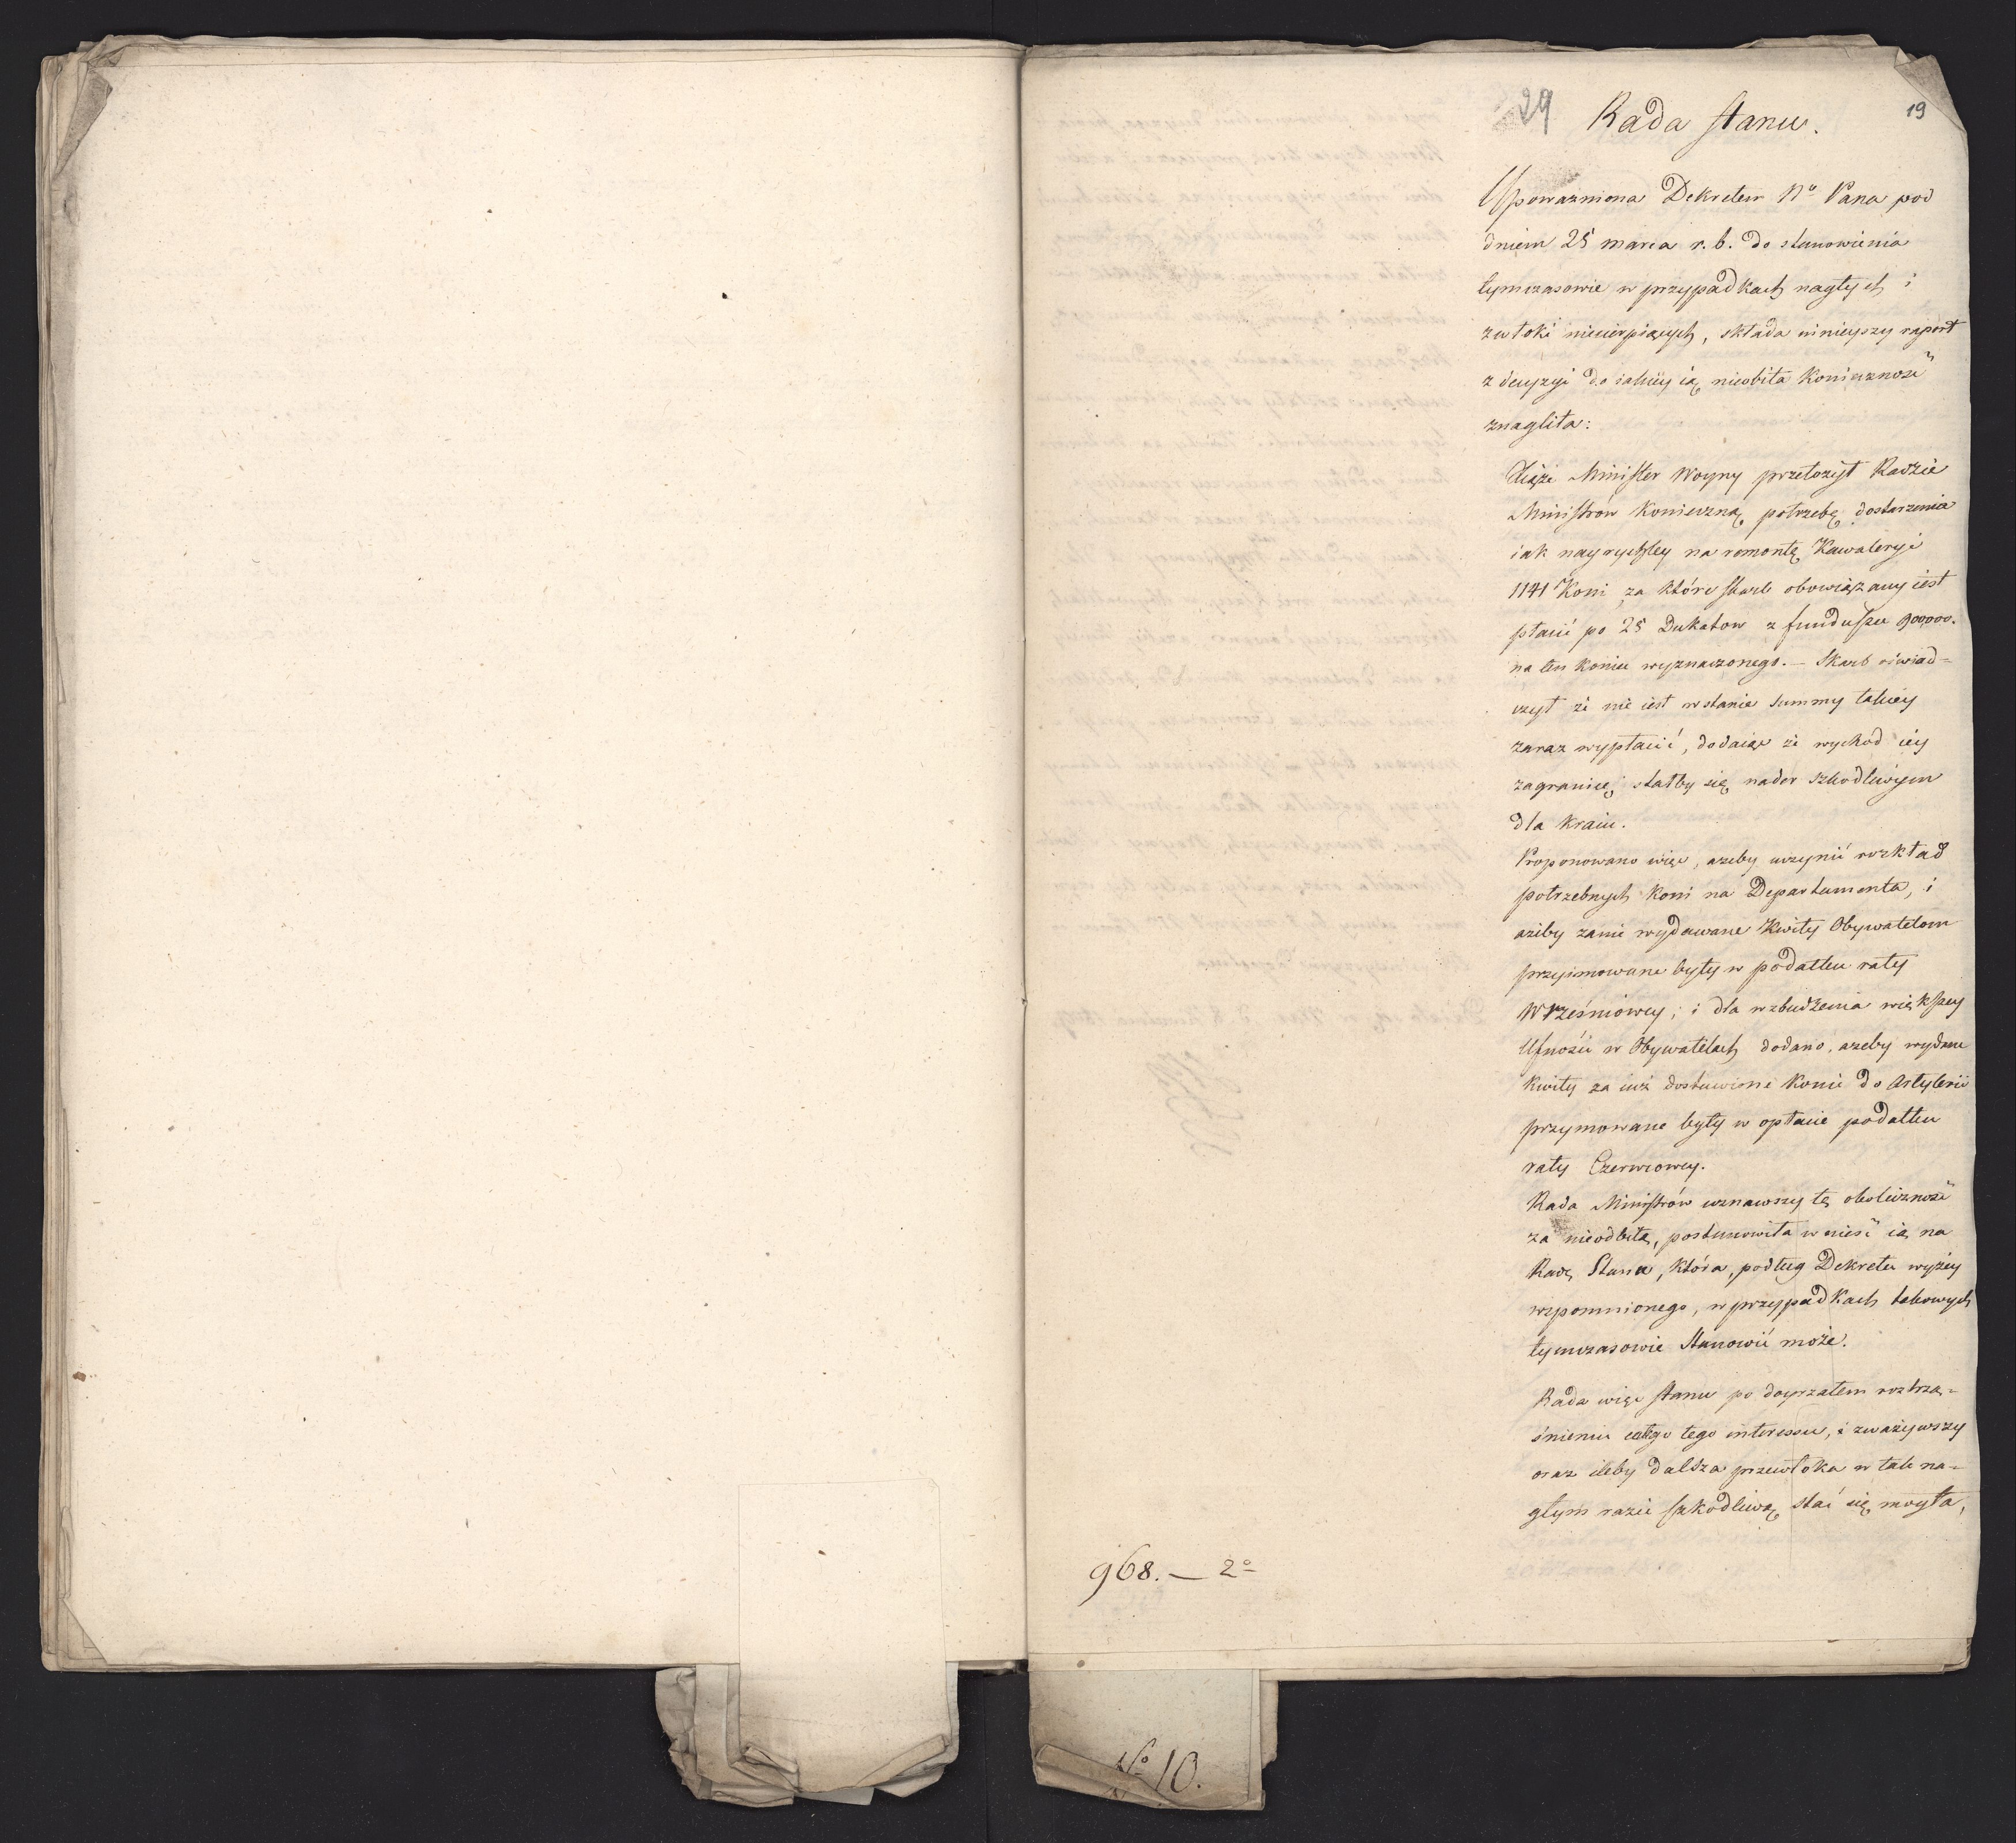 29
19
Rada Stanu.
Upoważniona Dekretem Nº Pana pod
dniem 25 marca r. b. do stanowienia
tymczasowie w przypadkach nagłych i
zwłoki niecierpiących, składa ninieyszy raport
z decyzyi do iakiey ią nieobita konieczność
znagliła:
Xiąże Minister Woyny przełożył Radzie
Ministrów konieczną potrzebę dostarzenia
iak nayrychley na remontę Kawaleryi
1141 Koni za które skarb obowiązany iest
płacić po 25 Dukatow z funduszu 900,000.
na ten koniec wyznaczonego. — Skarb oświad=
czył że nie iest w stanie summy takiey
zaraz wypłacić, dodaiąc że wychod iey
zagranicę stałby się nader szkodliwym
dla kraiu.
Proponowano więc, ażeby uczynić rozkład
potrzebnych koni na Departamenta, i
ażeby zanie wydawane Kwity Obywatelom
przyimowane były w podatku raty
Wrześniowey; i dla wzbudzenia większey
Ufności w Obywatelach dodano, ażeby wydane
kwity za iuż dostawione konie do Artylerii
przymowane były w opłacie podatku
raty Czerwcowey.
Rada Ministrów uznawszy tę okoliczność
za nieodbitą, postanowiła wnieść ią na
Radę Stanu, która, podług Dekretu wyżey
wspomnionego, w przypadkach takowych
tymczasowie Stanowić może.
Rada więc Stanu po doyrzałem roztrzą=
śnieniu całego tego interessu, i zważywszy
oraz ileby dalsza przewłoka w tak na=
głym razie szkodliwą stać się mogła,
968. — 2º
Nº 10.